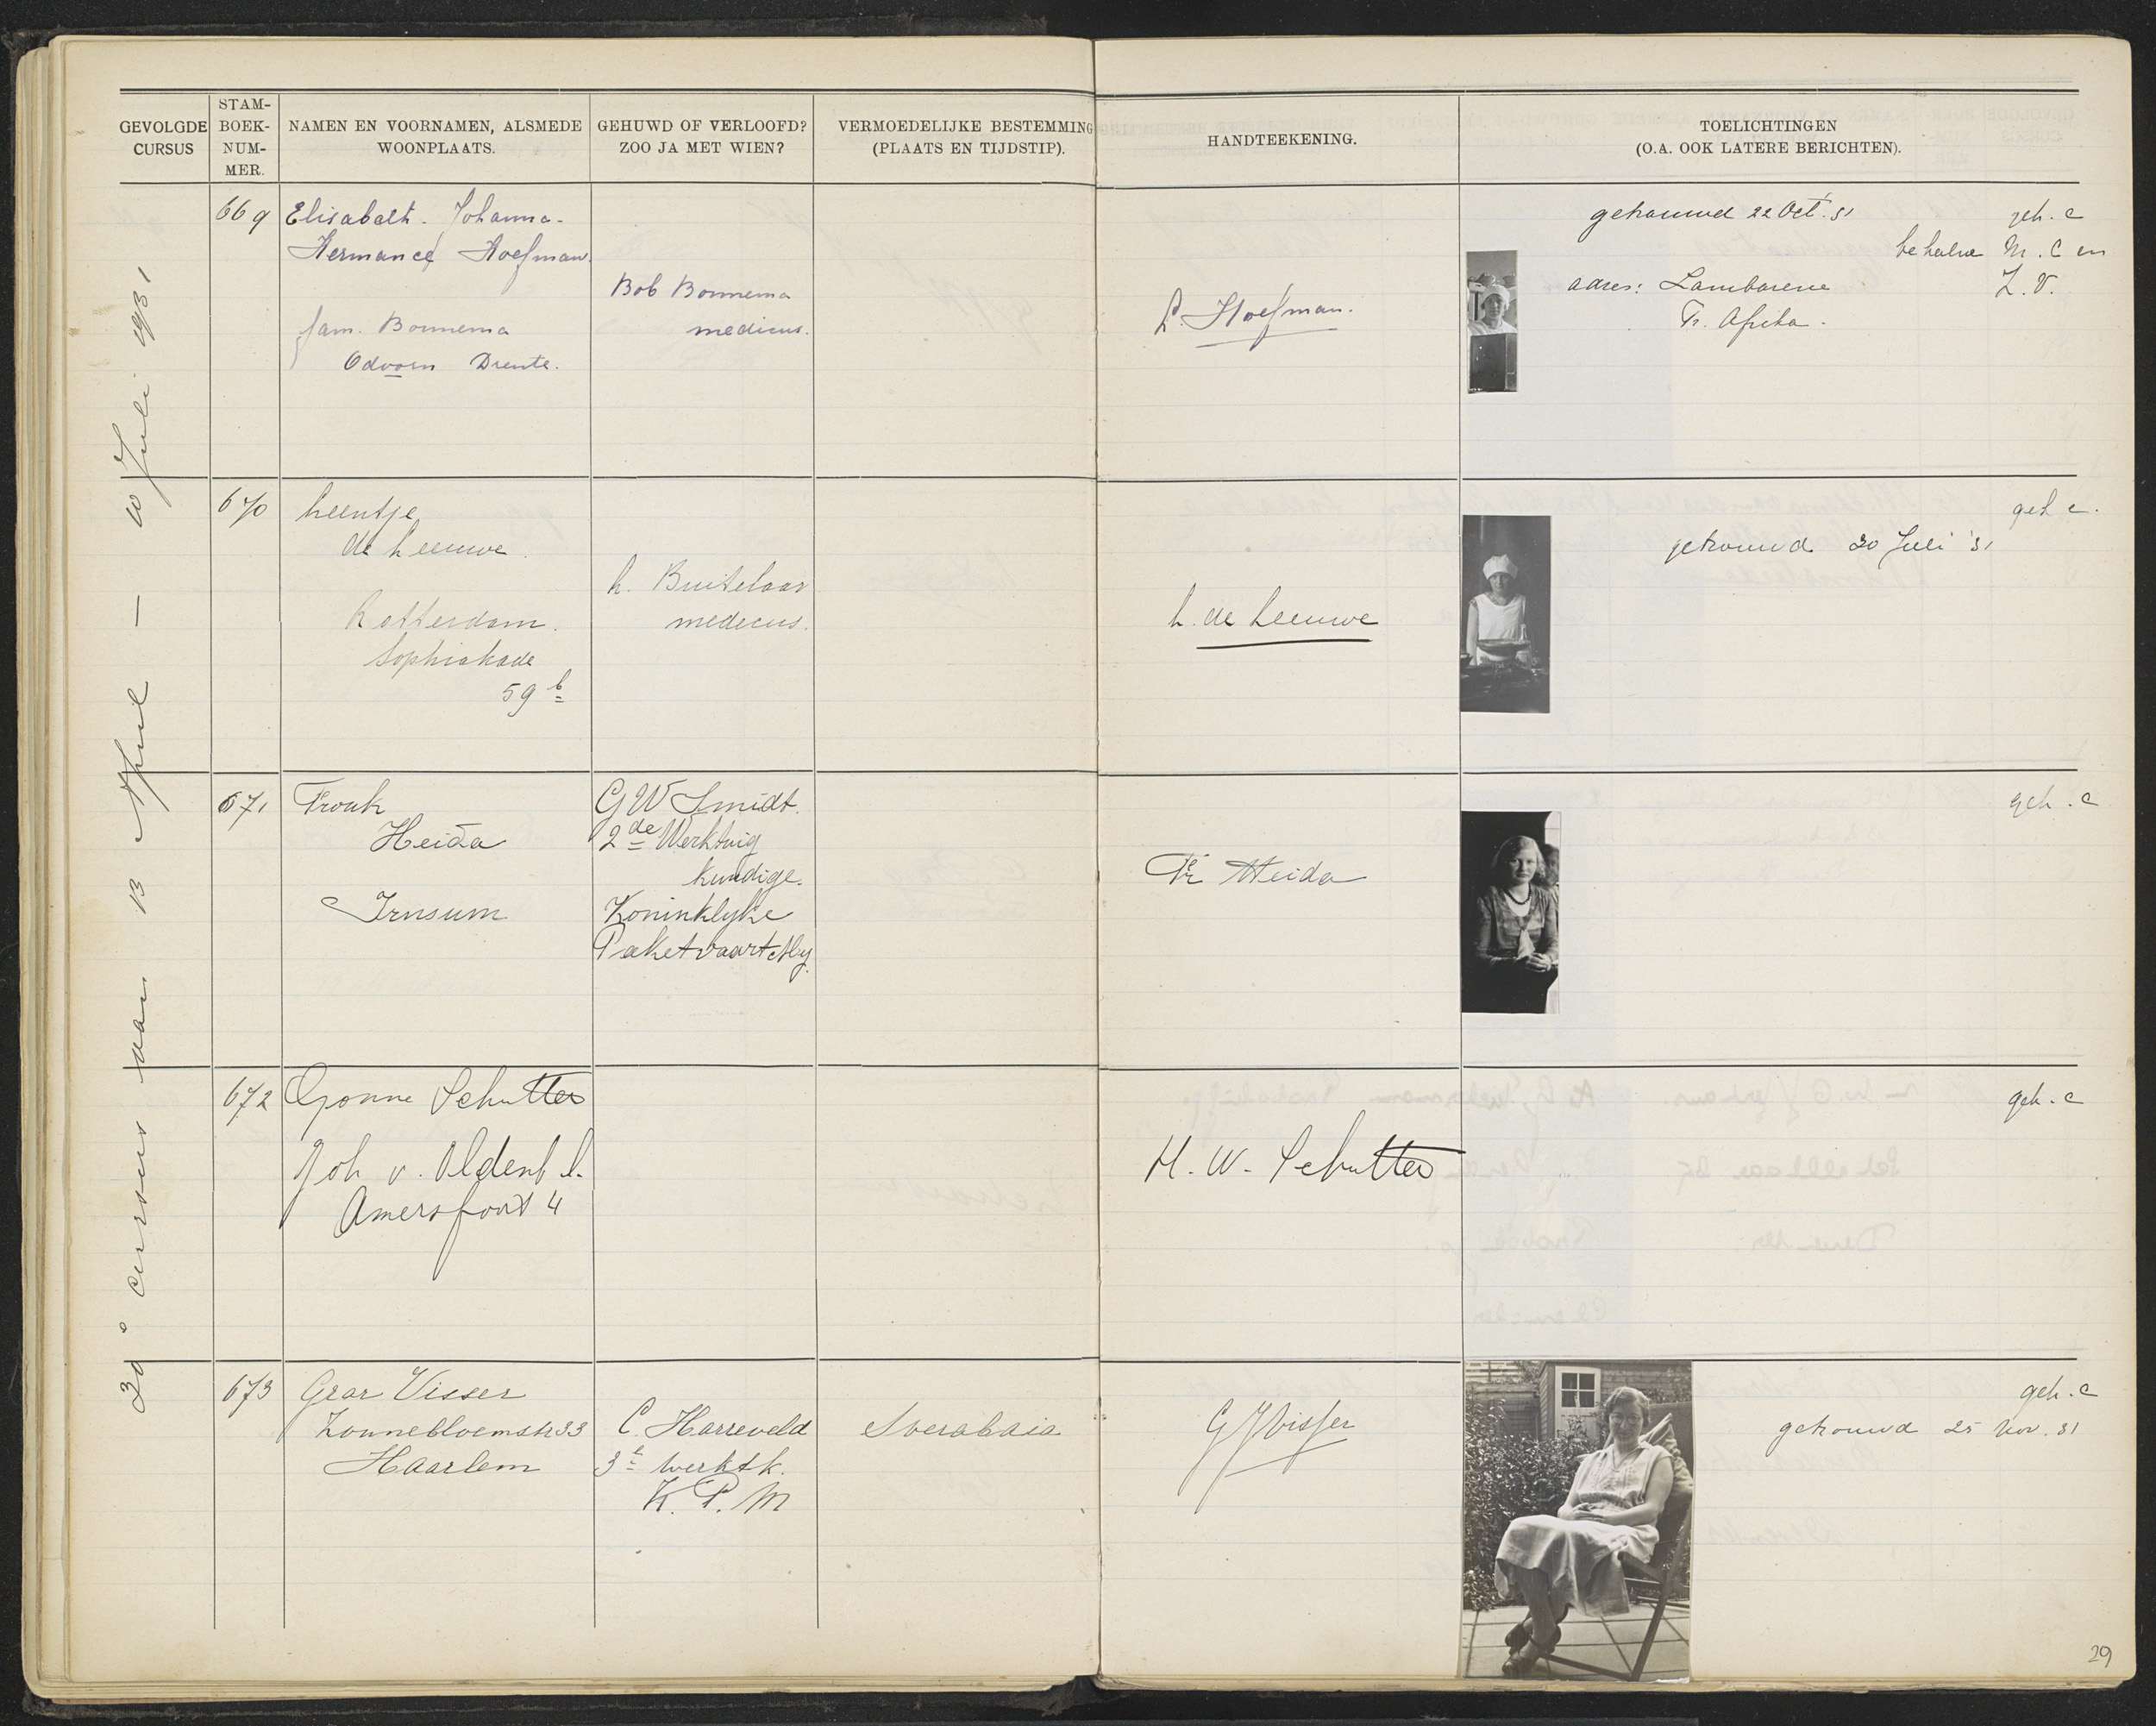 GEVOLGDE
CURSUS
STAM-
BOEK-
NUM-
MER.
NAMEN EN VOORNAMEN, ALSMEDE
WOONPLAATS.
GEHUWD OF VERLOOFD?
ZOO JA MET WIEN?
VERMOEDELIJKE BESTEMMING
(PLAATS EN TIJDSTIP).
HANDTEEKENING.
TOELICHTINGEN
(O.A. OOK LATERE BERICHTEN).
30e cursus van 13 April — 10 Juli 1931
669
Elisabeth. Johanna.
Hermance Hoefman.
fam. Bonnema
Odoorn Drente.
Bob Bonnema
medicus.
L. Hoefman.
getrouwd 22 Oct. '31
adres: Lambarene
Fr. Afrika.
geh. c
behalve M. C en
Z. V.
670
Leentje
de Leeuwe.
Rotterdam.
Sophiakade
59 b
h. Buitelaar
medicus.
L. de Leeuwe
getrouwd 30 Juli '31
geh c.
671
Frouk
Heida
Irnsum
G W Smidt.
2de Werktuig
kundige.
Koninklyke
Paketvaart My.
Fr Heida
geh. c
672
Gonne Schutter
Joh v. Oldenb l.
Amersfoort 4
H. W. Schutter
geh. c
673
Gear Visser
Zonnebloemstr 33
Haarlem
C. Harreveld
3e werktk.
K. P. M
Soerabaia
G J Visser
geh. c
getrouwd 25 Nov. 31
29